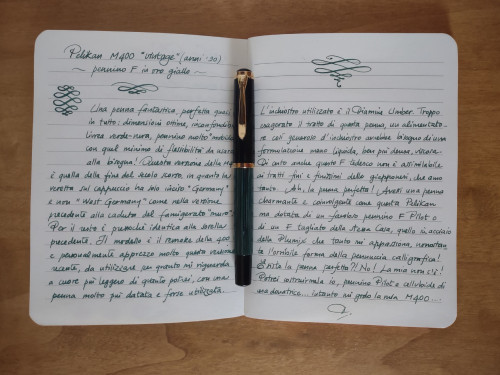 Pelikan M400 "vintage" (anni '90)
~ pennino F in oro giallo ~
Una penna fantastica, perfetta quasi
in tutto: dimensioni ottime, inconfondibile
livrea verde-nera, pennino molto "morbido"
con quel minimo di flessibilità da scrittura
alla bisogna! Questa versione della M
è quella della fine del secolo scorso, in quanto la
veretta sul cappuccio ha inciso "Germany"
e non "West Germany" come nella versione
precedente alla caduta del famigerato "muro"
Per il resto è pressoché identica alla sorella
precedente. Il modello è il remake della 400
e personalmente apprezzo molto questa versione
recente, da utilizzare per quanto mi riguarda
a cuore più leggero di quanto potrei, con una
penna molto più datata e forse utilizzata.
L'inchiostro utilizzato è il Diamine Umber. Troppo
esagerato il tratto di questa penna, un alimentatore
così generoso d'inchiostro avrebbe bisogno di una
formulazione meno liquida, ben più densa, viscosa.
Di certo anche questo F tedesco non è assimilabile
ai tratti fini e finissimi delle giapponesi, che amo
tanto. Ah, la penna perfetta! Avere una penna
charmante e coinvolgente come questa Pelikan
ma dotata di un favoloso pennino F Pilot o
di un F tagliato della stessa Casa, quello in acciaio
della Plumix che tanto mi appassiona, nonostante
l'orribile forma della pennuccia calligrafica!
Esiste la penna perfetta?! No! La mia non c'è!
Potrei costruirmela io, pennino Pilot e celluloide di
una donatrice... intanto mi godo la mia M400...